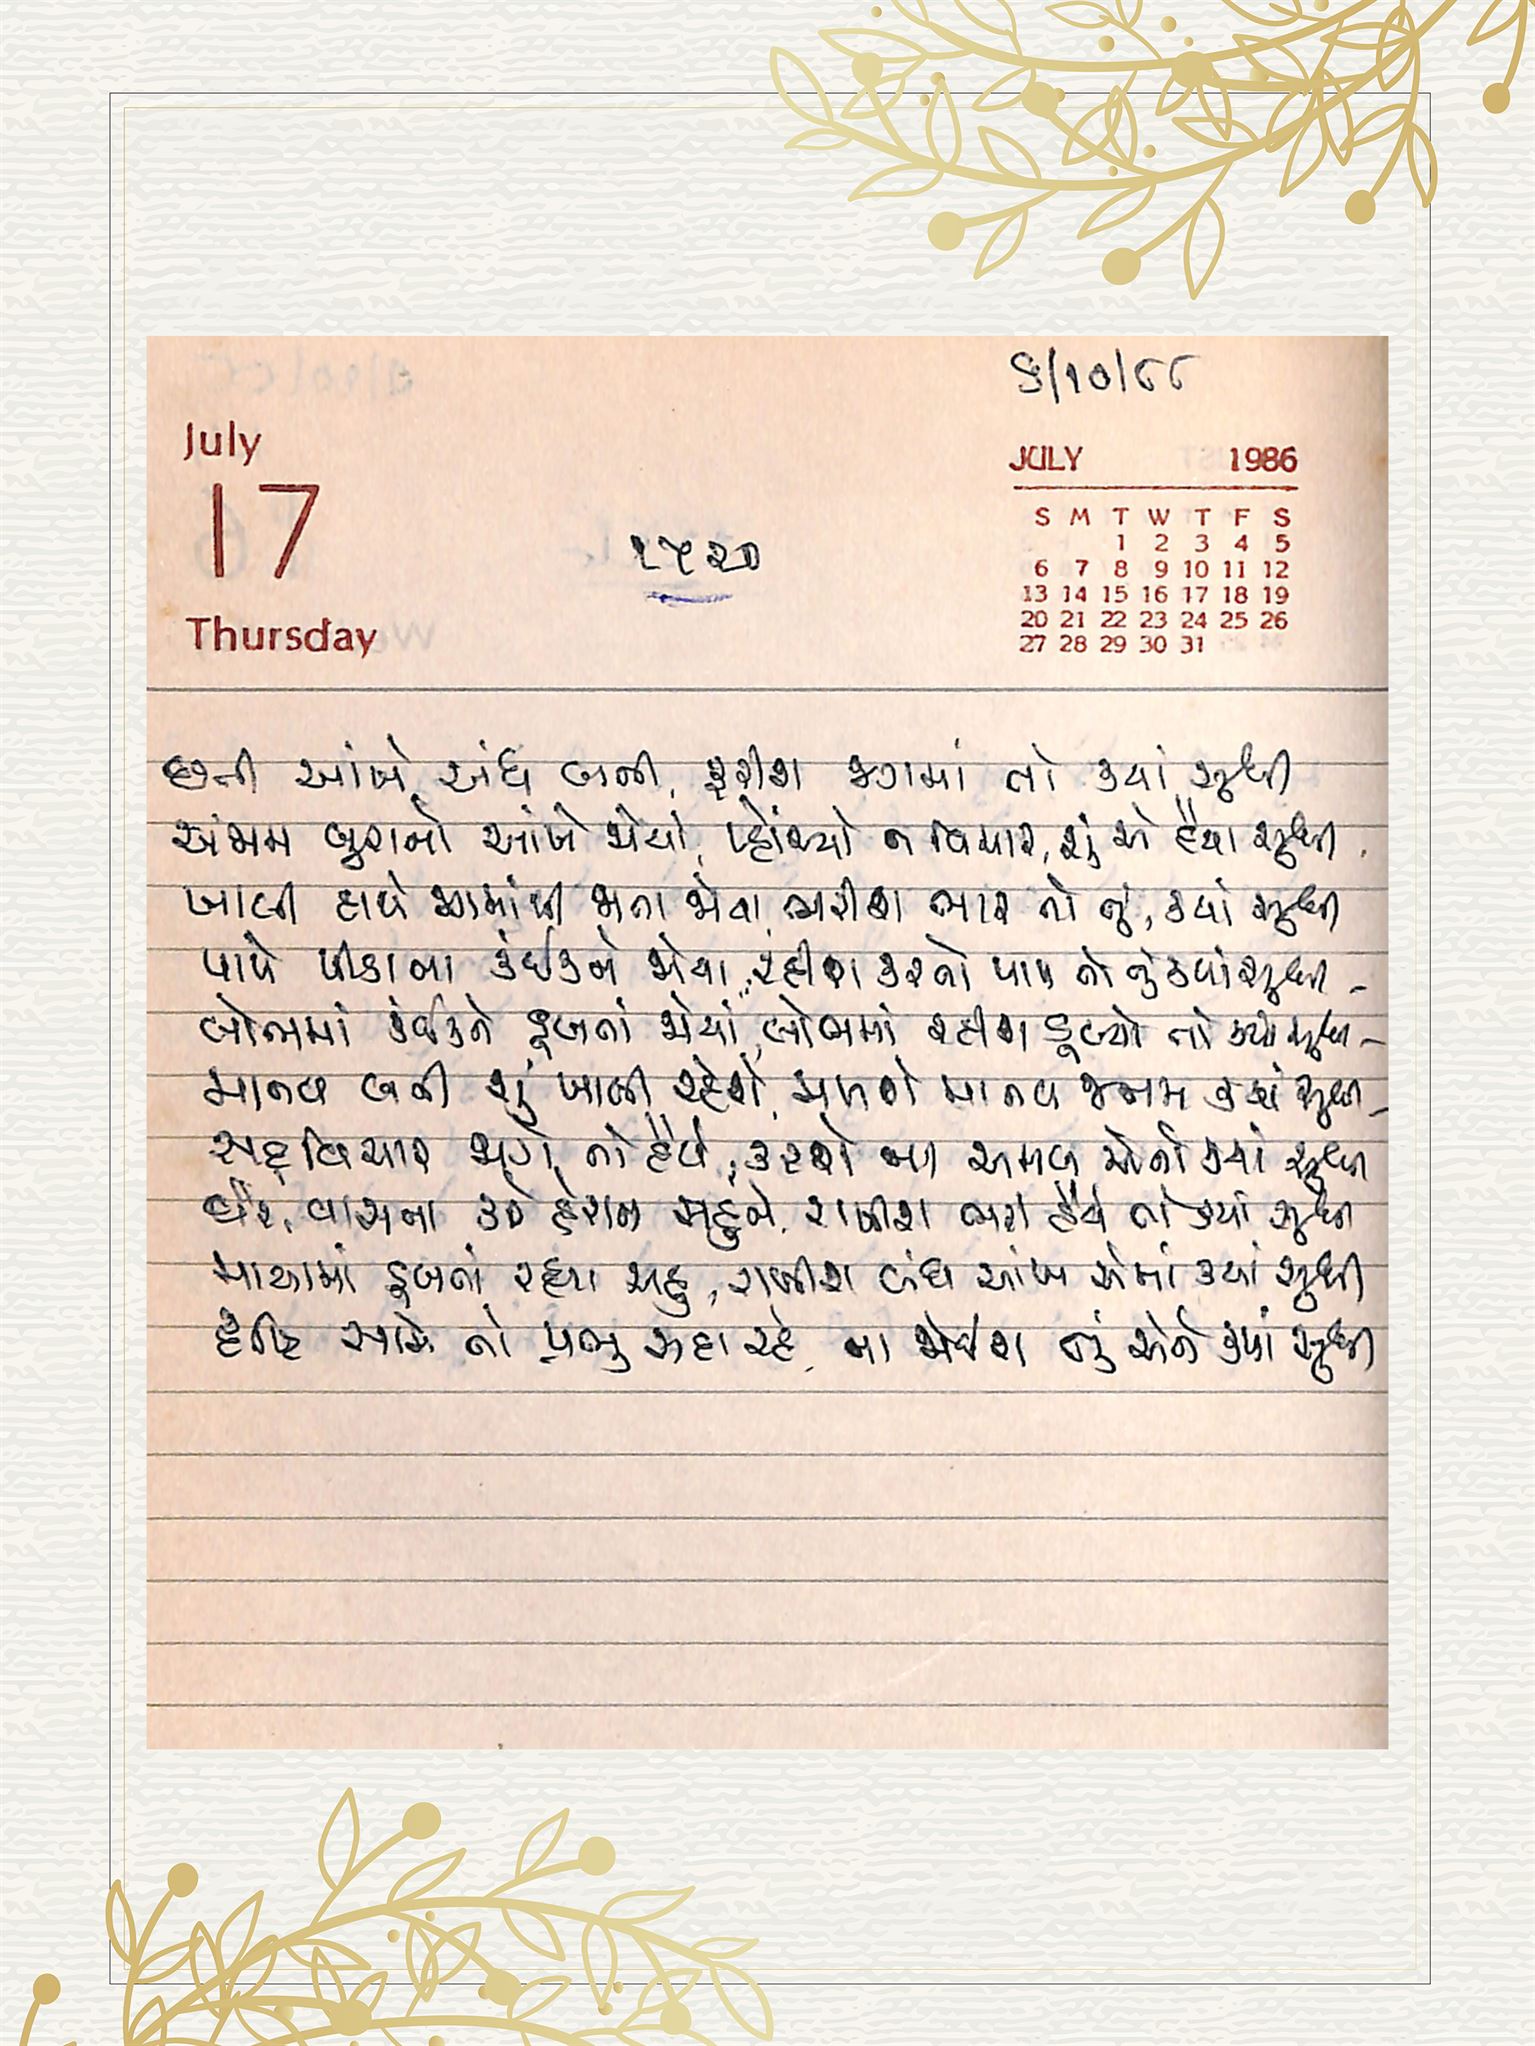 ૬/૧૦/૮૮
July
17
Thursday
JULY 1986
S M T W T F S
1 2 3 4 5
6 7 8 9 10 11 12
13 14 15 16 17 18 19
20 21 22 23 24 25 26
27 28 29 30 31
૧૫૨૦
છતી આંખે, અંધ બની, ફરીશ જગમાં તો ક્યાં સુધી
અંજામ બુરાનો આંખે જોયો, પ્હોંચ્યો ન વિચાર, શું એ હૈયા સુધી
ખાલી હાથે જગમાંથી જાતા જોવા, ભરીશ ભાર તો તું, ક્યાં સુધી
પાપે પીડાતા કંઈકને જોયા, રહીશ કરતો પાપ તો તું ક્યાં સુધી -
લોભમાં કંઈકને ડૂબતાં જોયાં, લોભમાં રહીશ ડૂબ્યો તો ક્યાં સુધી -
માનવ બની શું ખાલી રહેશે, મળશે માનવ જનમ ક્યાં સુધી -
સદ્દવિચાર જાગે તો હૈયે, કરશો ના અમલ એનો ક્યાં સુધી
વૈર, વાસના કરે હેરાન સહુને, રાખીશ ભરી હૈયે તો ક્યાં સુધી
માયામાં ડૂબતાં રહ્યા સહુ, રાખીશ બંધ આંખ એમાં ક્યાં સુધી
દૃષ્ટિ સામે તો પ્રભુ સદા રહે, ના જોઈશ તું એને ક્યાં સુધી